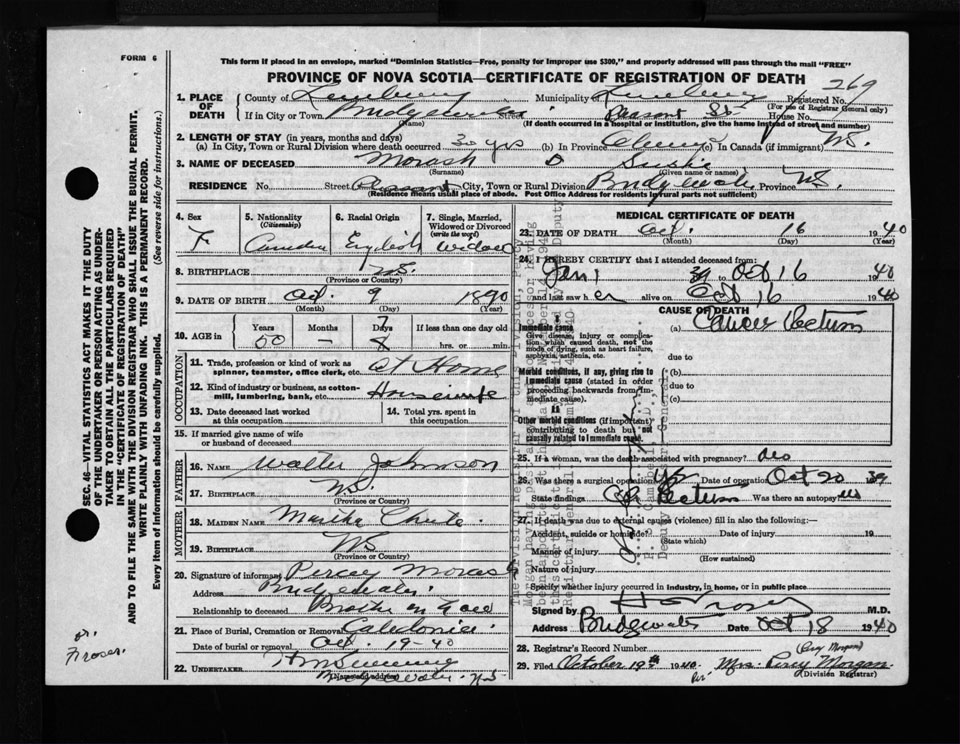 FORM 6
This form if placed in an envelope, marked "Dominion Statistics—Free, penalty for improper use $300," and properly addressed will pass through the mail "FREE"
PROVINCE OF NOVA SCOTIA—CERTIFICATE OF REGISTRATION OF DEATH
269
1. PLACE OF DEATH County of Lunenburg Municipality of Lunenburg Registered No.
(For use of Registrar General only)
If in City or Town Bridgewater Street Pleasant St House No.
(Name) (If death occurred in a hospital or institution, give the name instead of street and number)
2. LENGTH OF STAY (in years, months and days)
(a) In City, Town or Rural Division where death occurred 30 yrs (b) In Province (c) In Canada (if immigrant) NS.
3. NAME OF DECEASED Morash
(Surname) (Given name or names)
RESIDENCE No. Street Pleasant City, Town or Rural Division Bridgewater Province NS.
(Residence means usual place of abode. Post Office Address for residents in rural parts not sufficient)
4. Sex F
5. Nationality (Citizenship) Canadian
6. Racial Origin English
7. Single, Married, Widowed or Divorced (write the word) Widow
8. BIRTHPLACE NS.
(Province or Country)
9. DATE OF BIRTH Oct. 9 1890
(Month) (Day) (Year)
10. AGE in Years Months Days If less than one day old
50 — 7 8 hrs. or min.
OCCUPATION
11. Trade, profession or kind of work as spinner, teamster, office clerk, etc. At Home
12. Kind of industry or business, as cotton-mill, lumbering, bank, etc. Housewife
13. Date deceased last worked at this occupation
14. Total yrs. spent in this occupation
15. If married give name of wife or husband of deceased
FATHER
16. NAME Walter Johnson
17. BIRTHPLACE NS.
(Province or Country)
MOTHER
18. MAIDEN NAME Martha Chute
19. BIRTHPLACE NS
(Province or Country)
20. Signature of informant Percey Morash
Address Bridgewater
Relationship to deceased Brother in Law
21. Place of Burial, Cremation or Removal Caledonia.
Date of burial or removal Oct. 19-40
22. UNDERTAKER
(Name and address) Bridgewater. NS
MEDICAL CERTIFICATE OF DEATH
23. DATE OF DEATH Oct. 16 1940
(Month) (Day) (Year)
24. I HEREBY CERTIFY that I attended deceased from:
Jan 1 39 to Oct 16 1940
and last saw her alive on Oct 16 1940
CAUSE OF DEATH
Immediate cause
Give disease, injury or complication which caused death, not the mode of dying, such as heart failure, asphyxia, asthenia, etc.
(a) Cancer Rectum
due to
Morbid conditions, if any, giving rise to immediate cause (stated in order proceeding backwards from immediate cause).
(b)
due to
(c)
Other morbid conditions (if important) contributing to death but not causally related to immediate cause.
25. If a woman, was the death associated with pregnancy? No
26. Was there a surgical operation? Yes Date of operation Oct 20 39
State findings Rectum Was there an autopsy No
27. If death was due to external causes (violence) fill in also the following:—
Accident, suicide or homicide? Date of injury 19
(State which)
Manner of injury
(How sustained)
Nature of injury
Specify whether injury occurred in industry, in home, or in public place
Signed by M.D.
Address Bridgewater Date Oct 18 1940
28. Registrar's Record Number
(Percy Morgan)
29. Filed October 19th 1940. Per Mrs. Percy Morgan
(Division Registrar)
SEC. 46—VITAL STATISTICS ACT MAKES IT THE DUTY OF THE UNDERTAKER OR PERSON ACTING AS UNDERTAKER TO OBTAIN ALL THE PARTICULARS REQUIRED IN THE "CERTIFICATE OF REGISTRATION OF DEATH"
AND TO FILE THE SAME WITH THE DIVISION REGISTRAR WHO SHALL ISSUE THE BURIAL PERMIT.
WRITE PLAINLY WITH UNFADING INK. THIS IS A PERMANENT RECORD.
Every item of information should be carefully supplied. (See reverse side for instructions.)